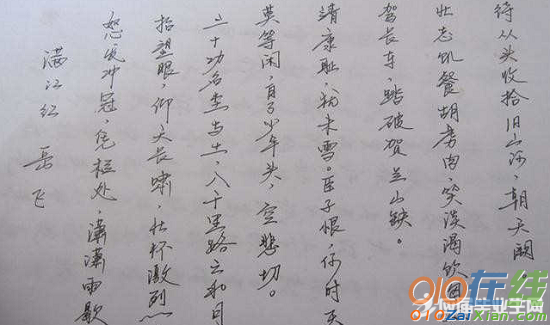 满江红 岳飞
怒发冲冠，凭栏处，潇潇雨歇
抬望眼，仰天长啸，壮怀激烈
三十功名尘与土，八千里路云和月
莫等闲，白了少年头，空悲切。
靖康耻，犹未雪。臣子恨，何时灭
驾长车，踏破贺兰山缺。
壮志饥餐胡虏肉，笑谈渴饮匈
待从头收拾旧山河，朝天阙
在线
ZaiXian.com
应届毕业生网